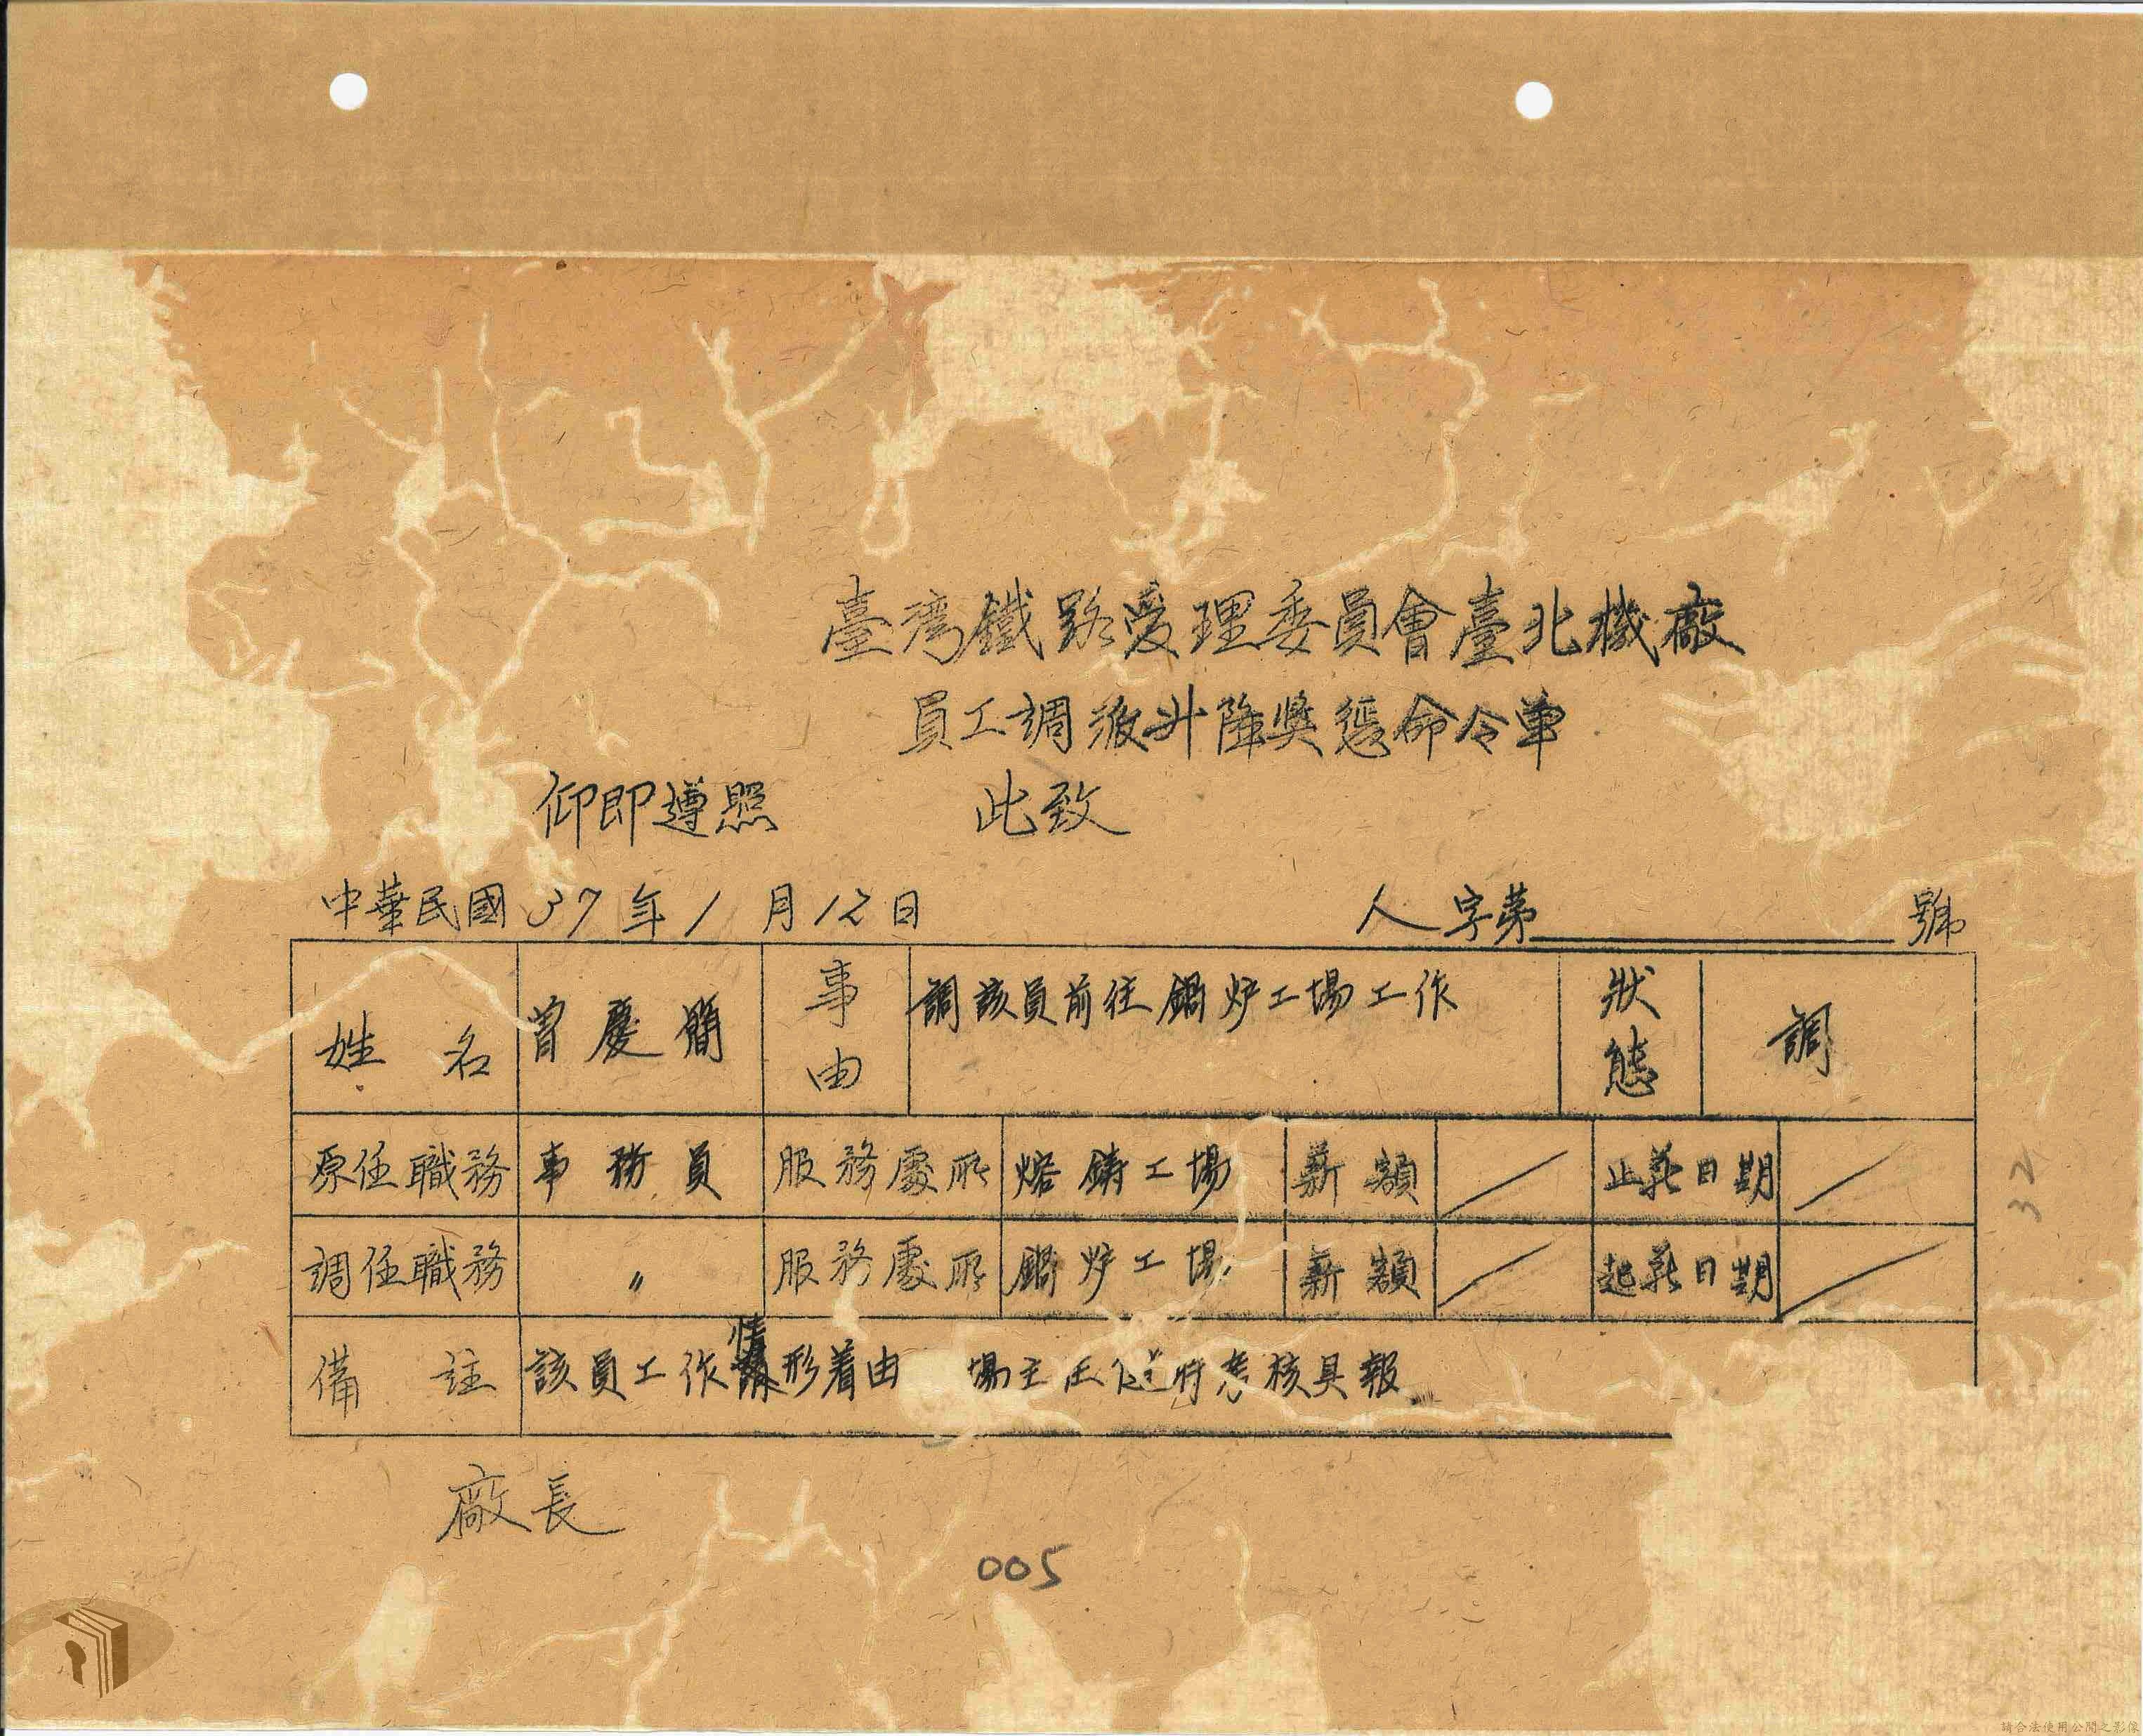 臺灣鐵路管理委員會臺北機廠
員工調派升降獎懲命令單
仰即遵照 此致
中華民國37年1月12日 人字第 號
姓名 曾慶簡 事由 調該員前往鍋炉工場工作 狀態 調
原任職務 事務員 服務處所 熔鑄工場 薪額 / 止薪日期 /
調任職務 〃 服務處所 鍋炉工場 薪額 / 起薪日期 /
備註 該員工作情形着由 場主任隨時考核具報
廠長
005
32
請合法使用公開之影像